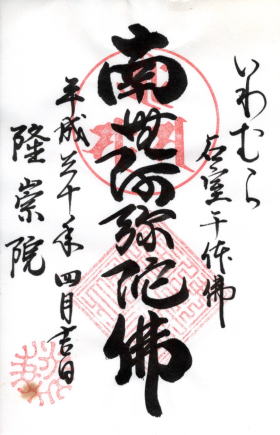 いわむら
石室千体佛
南無阿弥陀佛
平成三十年四月吉日
隆崇院